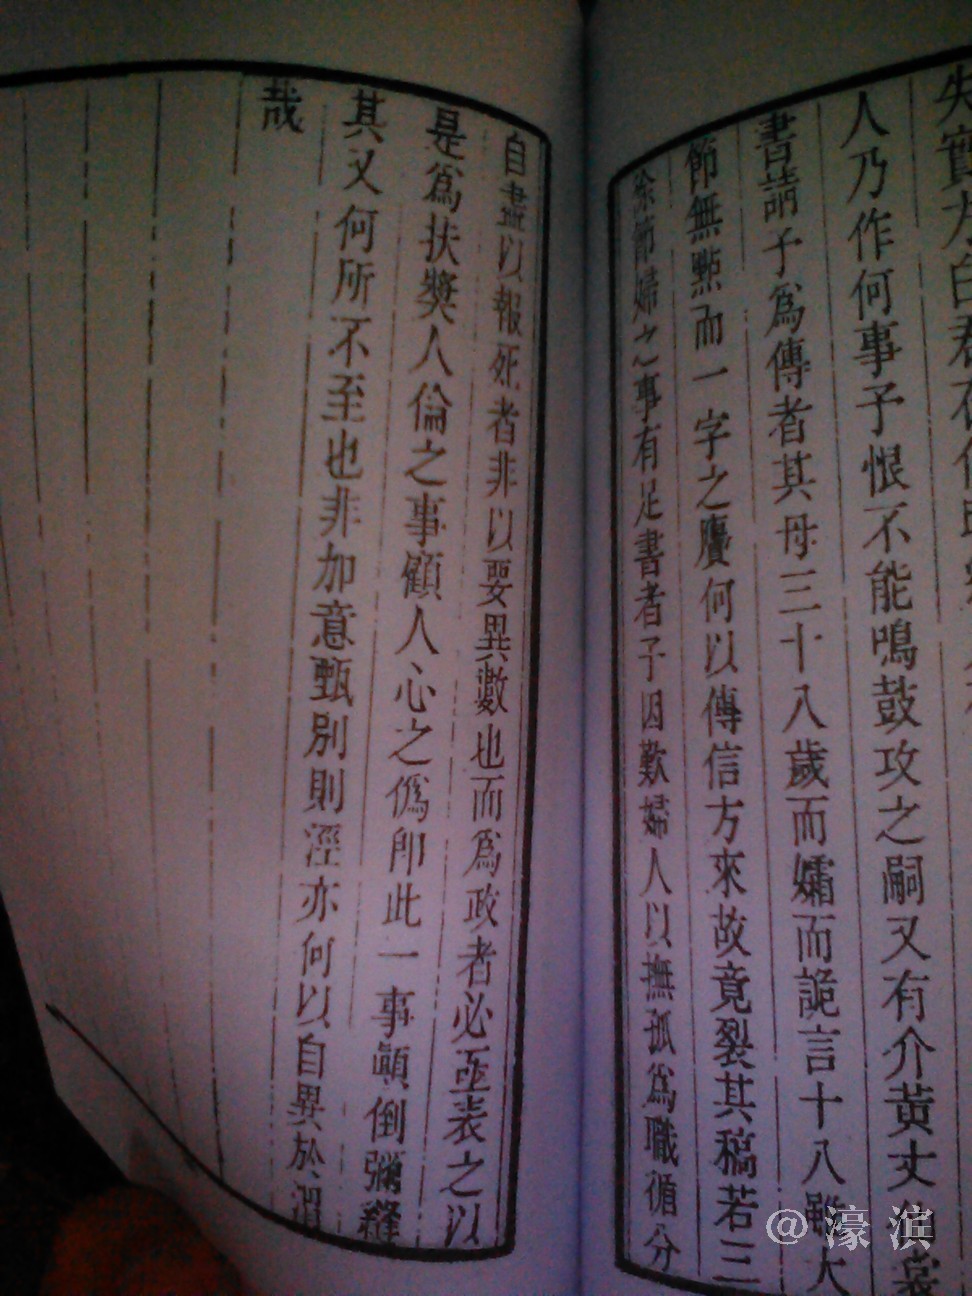 失實太白君
人乃作何事予恨不能鳴鼓攻之嗣又有介黃丈俱裳
書請予為傳者其母三十八歲而孀而詭言十八雖大
節無黙而一字之贗何以傳信方來故竟裂其稿若三
徐節婦之事有足書者予因歎婦人以撫孤為職循分
自盡以報死者非以要異數也而為政者必亟表之以
是為扶獎人倫之事顧人心之僞卽此一事顚倒彌縫
其又何所不至也非加意甄別則涇亦何以自異於渭
哉
@濠滨